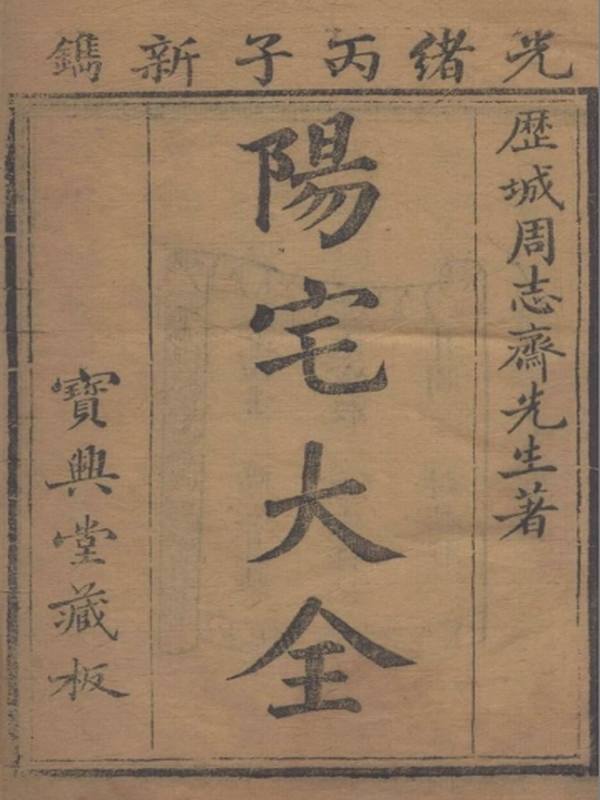 光緒丙子新鐫
歷城周志齋先生著
陽宅大全
寶興堂藏板